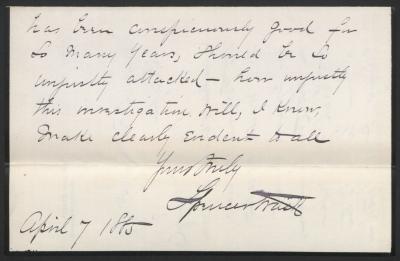 has been conspicuously good for
so many years, should be so
unjustly attacked – how unjustly
this investigation will, I know,
make clearly evident to all
Yours truly
Spencer Trask
April 7 1885